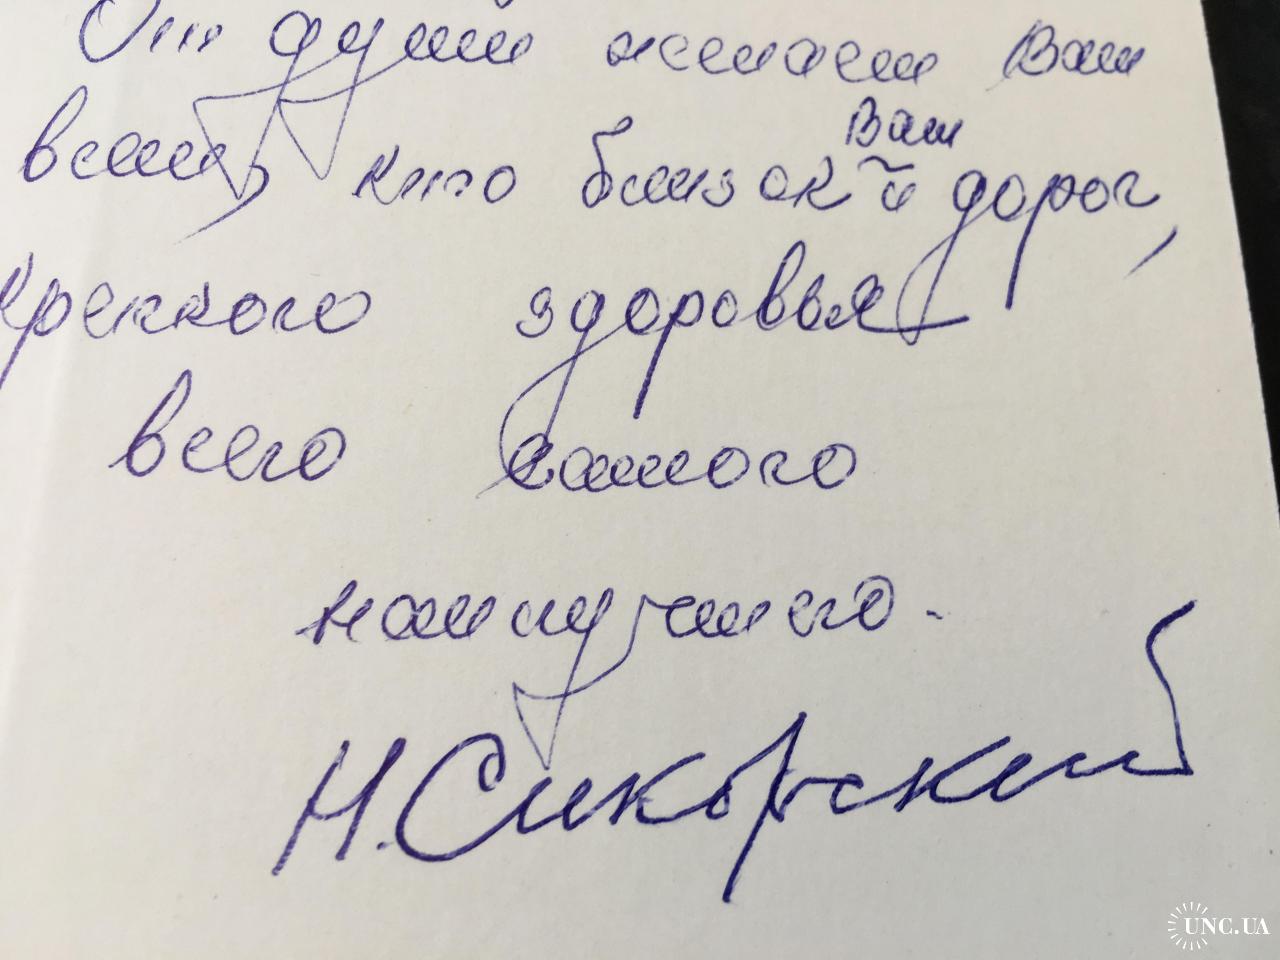 От души желаем Вам
всем, кто близок Вам и дорог,
крепкого здоровья
всего самого
наилучшего.
Н. Сикорский
UNC.UA